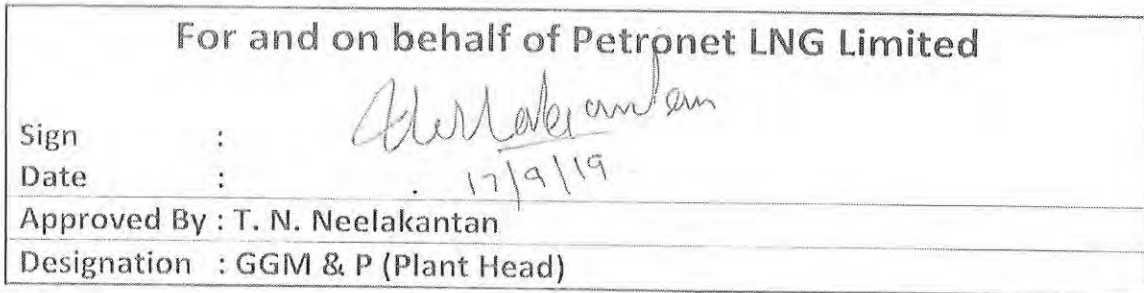 For and on behalf of Petronet LNG Limited
Sign :
Date : 17/9/19
Approved By : T. N. Neelakantan
Designation : GGM & P (Plant Head)